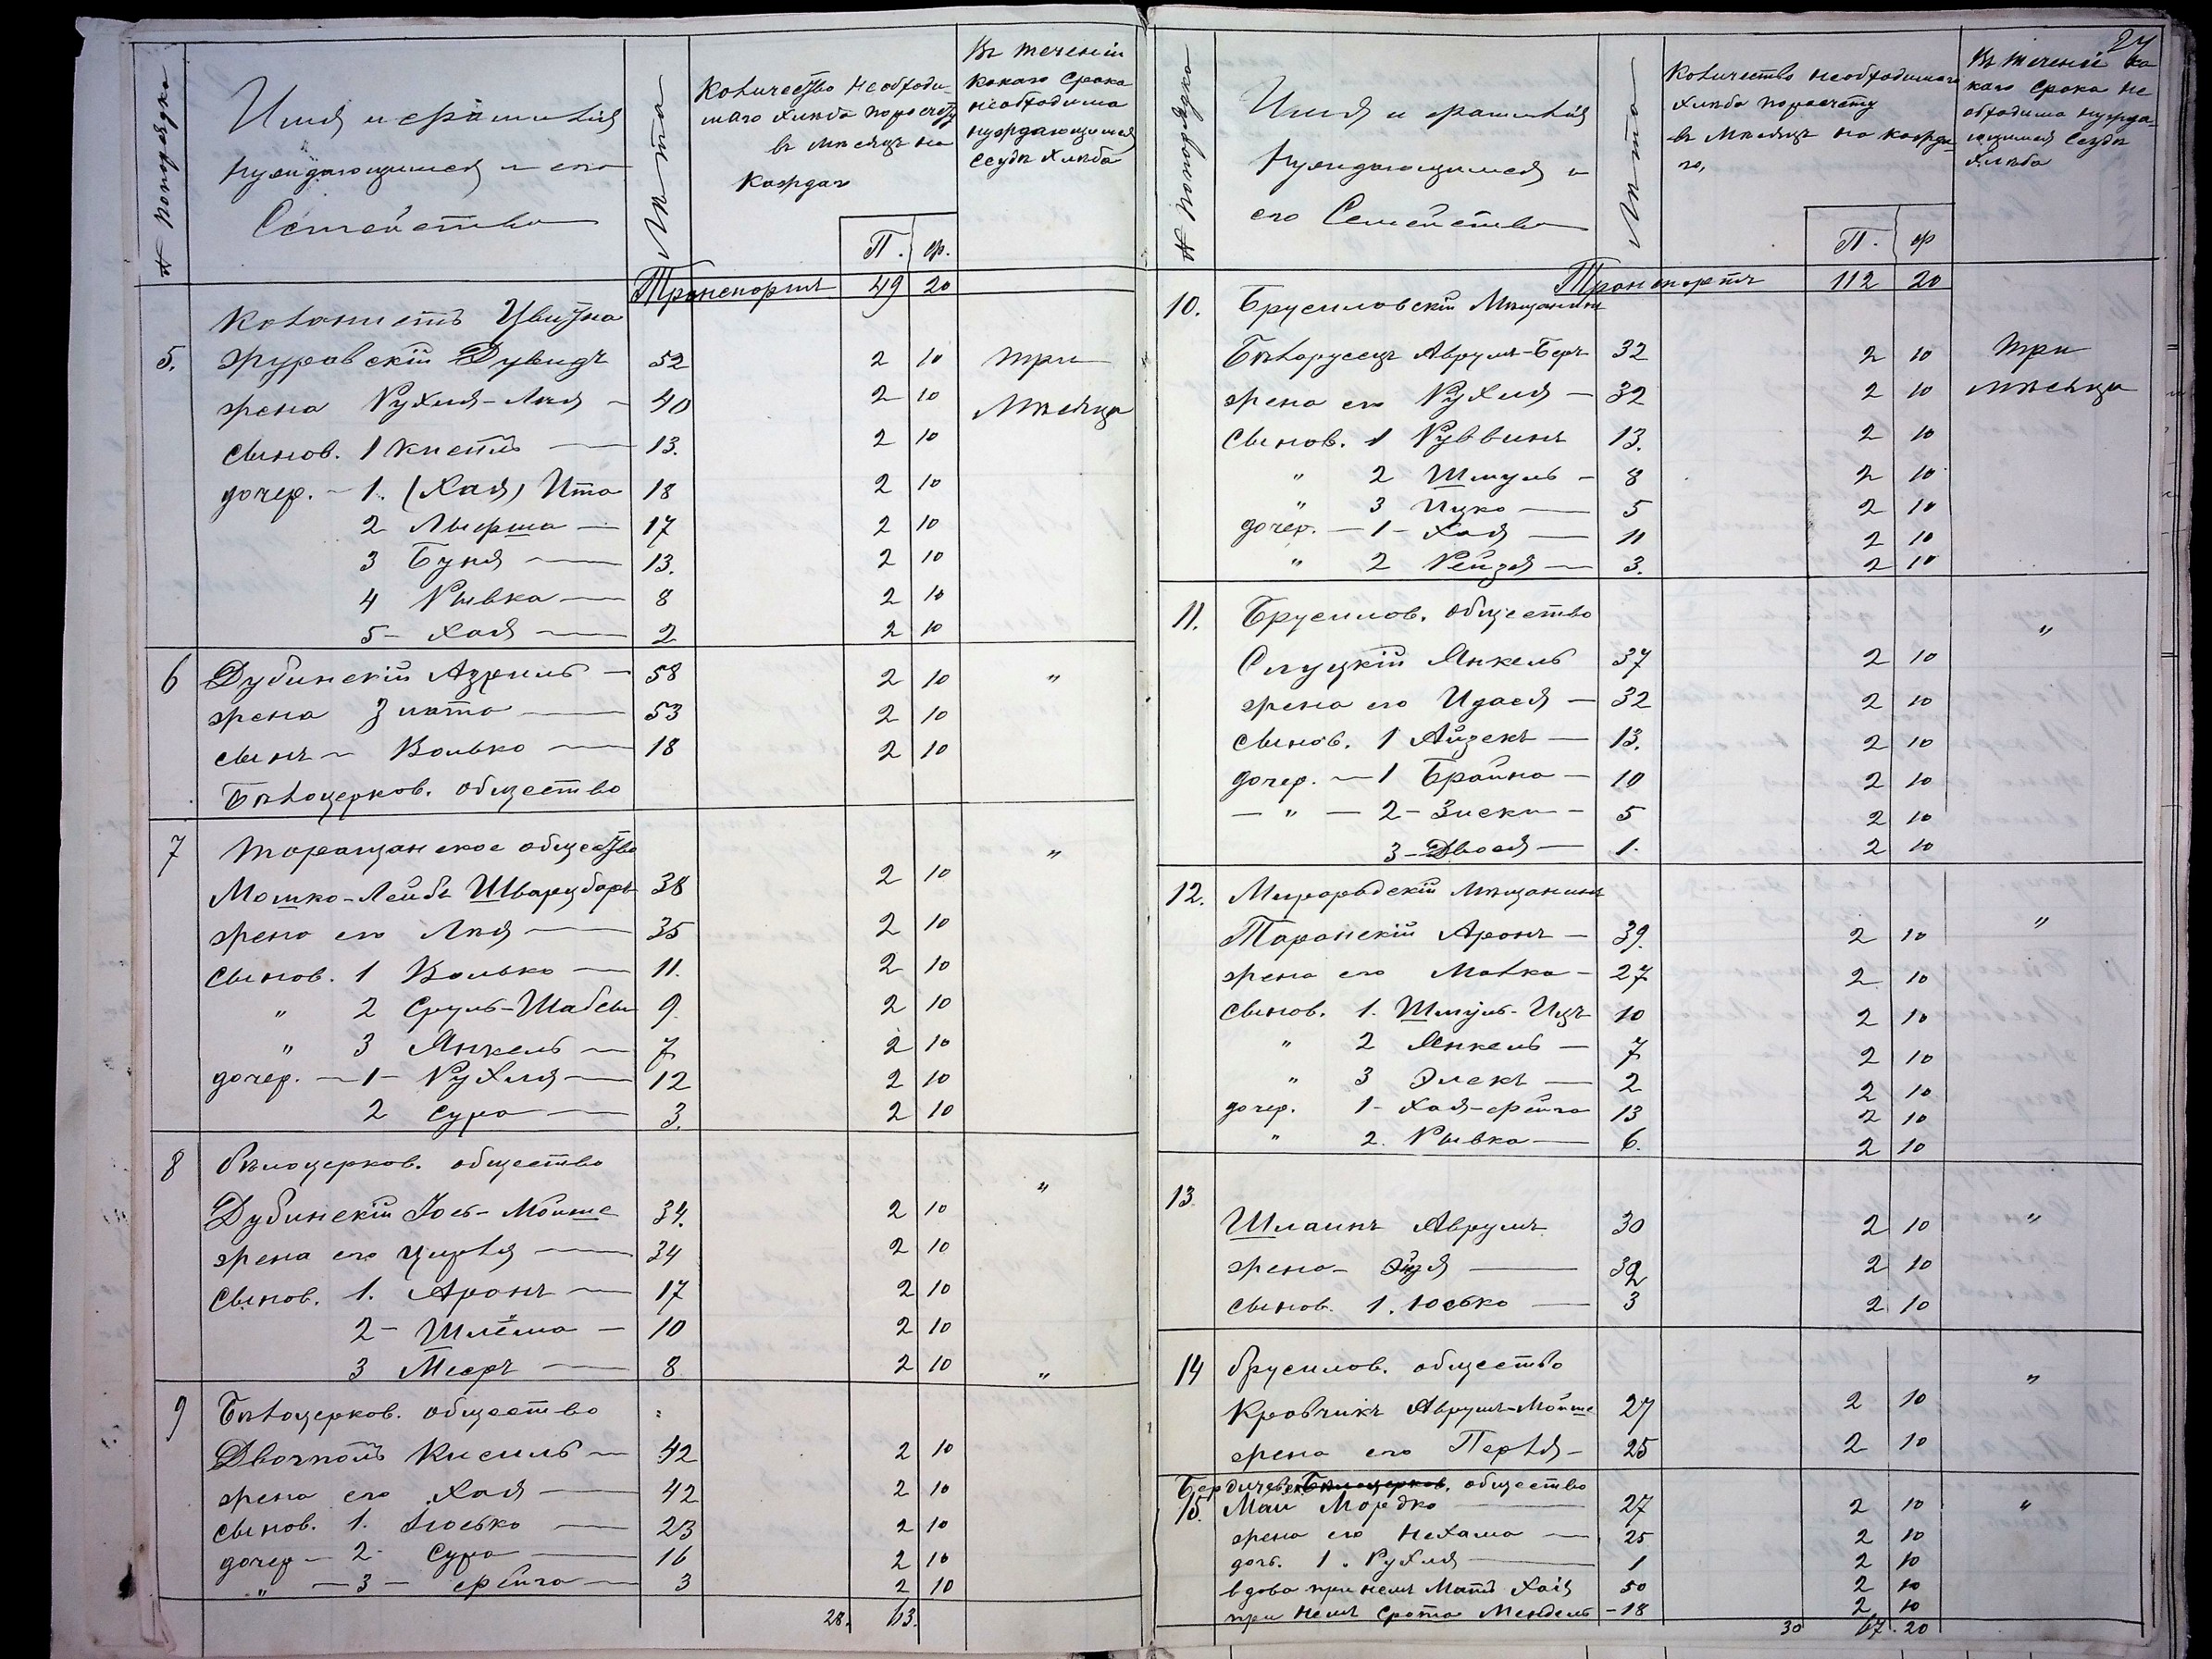 № попорядка
Имя и фамилія
нуждающимся и его
Семейство
Лѣта
Количество необходи-
маго хлѣба порасчету
въ мѣсяцъ на
каждаго
П. ф.
Въ теченіи
какаго срока
необходима
нуждающимся
ссуда хлѣба
Транспортъ 49 20
Колонистъ
5. Журавскій Дувидъ 52 2 10 три
жена Рухля-Лея - 40 2 10 мѣсяца
сынов. 1 13. 2 10
дочер. - 1. (Хая) Ита 18 2 10
2 17 2 10
3 Буня 13. 2 10
4 Рывка 8 2 10
5 - Хая 2 2 10
6 Дубинскій Азриль - 58 2 10 "
жена Злата 53 2 10
сынъ - Волько 18 2 10
Бѣлоцерков. общество
7 Таращанское общество "
Мошко-Лейбъ Шварцборъ 38 2 10
жена его Лея 35 2 10
сынов. 1 Волько 11. 2 10
" 2 Сруль-Шабсы 9. 2 10
" 3 Янкель 7 2 10
дочер. - 1 - Рухля 12 2 10
2 Сура 3. 2 10
8 бѣлоцерков. общество "
Дубинскій Іось-Мойше 34. 2 10
жена его Цирля 34 2 10
сынов. 1. Аронъ 17 2 10
2 - Шлёма - 10 2 10
3 Мееръ 8 2 10 "
9 Бѣлоцерков. общество
Кисиль 42 2 10
жена его Хая 42 2 10
сынов. 1. Іосько 23 2 10
дочер - 2 - Сура 16 2 10
" - 3 - фейга 3 2 10
28. 63.
24
№ попорядка
Имя и фамилія
нуждающимся и
его Семейство
Лѣта
Количество необходимаго
хлѣба порасчету
въ мѣсяцъ на каждa-
го,
П. ф
Въ теченіе ка
каго срока не
обходима нужда-
ющимся ссуда
хлѣба
Транспортъ 112 20
10. Брусиловскій мѣщанинъ
Бѣлорусецъ Аврумъ-Беръ 32 2 10 три
жена его Рухля - 32 2 10 мѣсяца
сынов. 1 Руввинъ 13. 2 10
" 2 Шмуль - 8 2 10
" 3 Ицко 5 2 10
дочер. - 1 - Хая 11 2 10
" 2 Рейзя 3. 2 10
11. Брусилов. общество "
Слуцкій Янкель 37 2 10
жена его Идася - 32 2 10
сынов. 1 Айзекъ 13. 2 10
дочер. - 1 Брайна - 10 2 10
- " - 2 - Зиски - 5 2 10
3 - Двося 1. 2 10
12. мѣщанинъ "
Таранскій Аронъ - 39. 2 10
жена его Малка - 27 2 10
сынов. 1. Шмуль-Ицъ 10 2 10
" 2 Янкель 7 2 10
" 3 Элекъ 2 2 10
дочер. 1 - Хая-фейга 13 2 10
" 2. Рывка 6. 2 10
13.
Шлаинъ Аврумъ 30 2 10 "
жена - 2 10
сынов. 1. Іосько 3 2 10
14 брусилов. общество "
Кравчикъ Аврумъ-Мойше 27 2 10
жена его Перля - 25 2 10
Бердичев. Бѣлоцерков. общество
15. Маи Мордко 27 2 10 "
жена его Нехама 25 2 10
дочь. 1. Рухля 1 2 10
вдова при немъ Мать Хая 50 2 10
при немъ срота Мендель - 18 2 10
30 67. 20